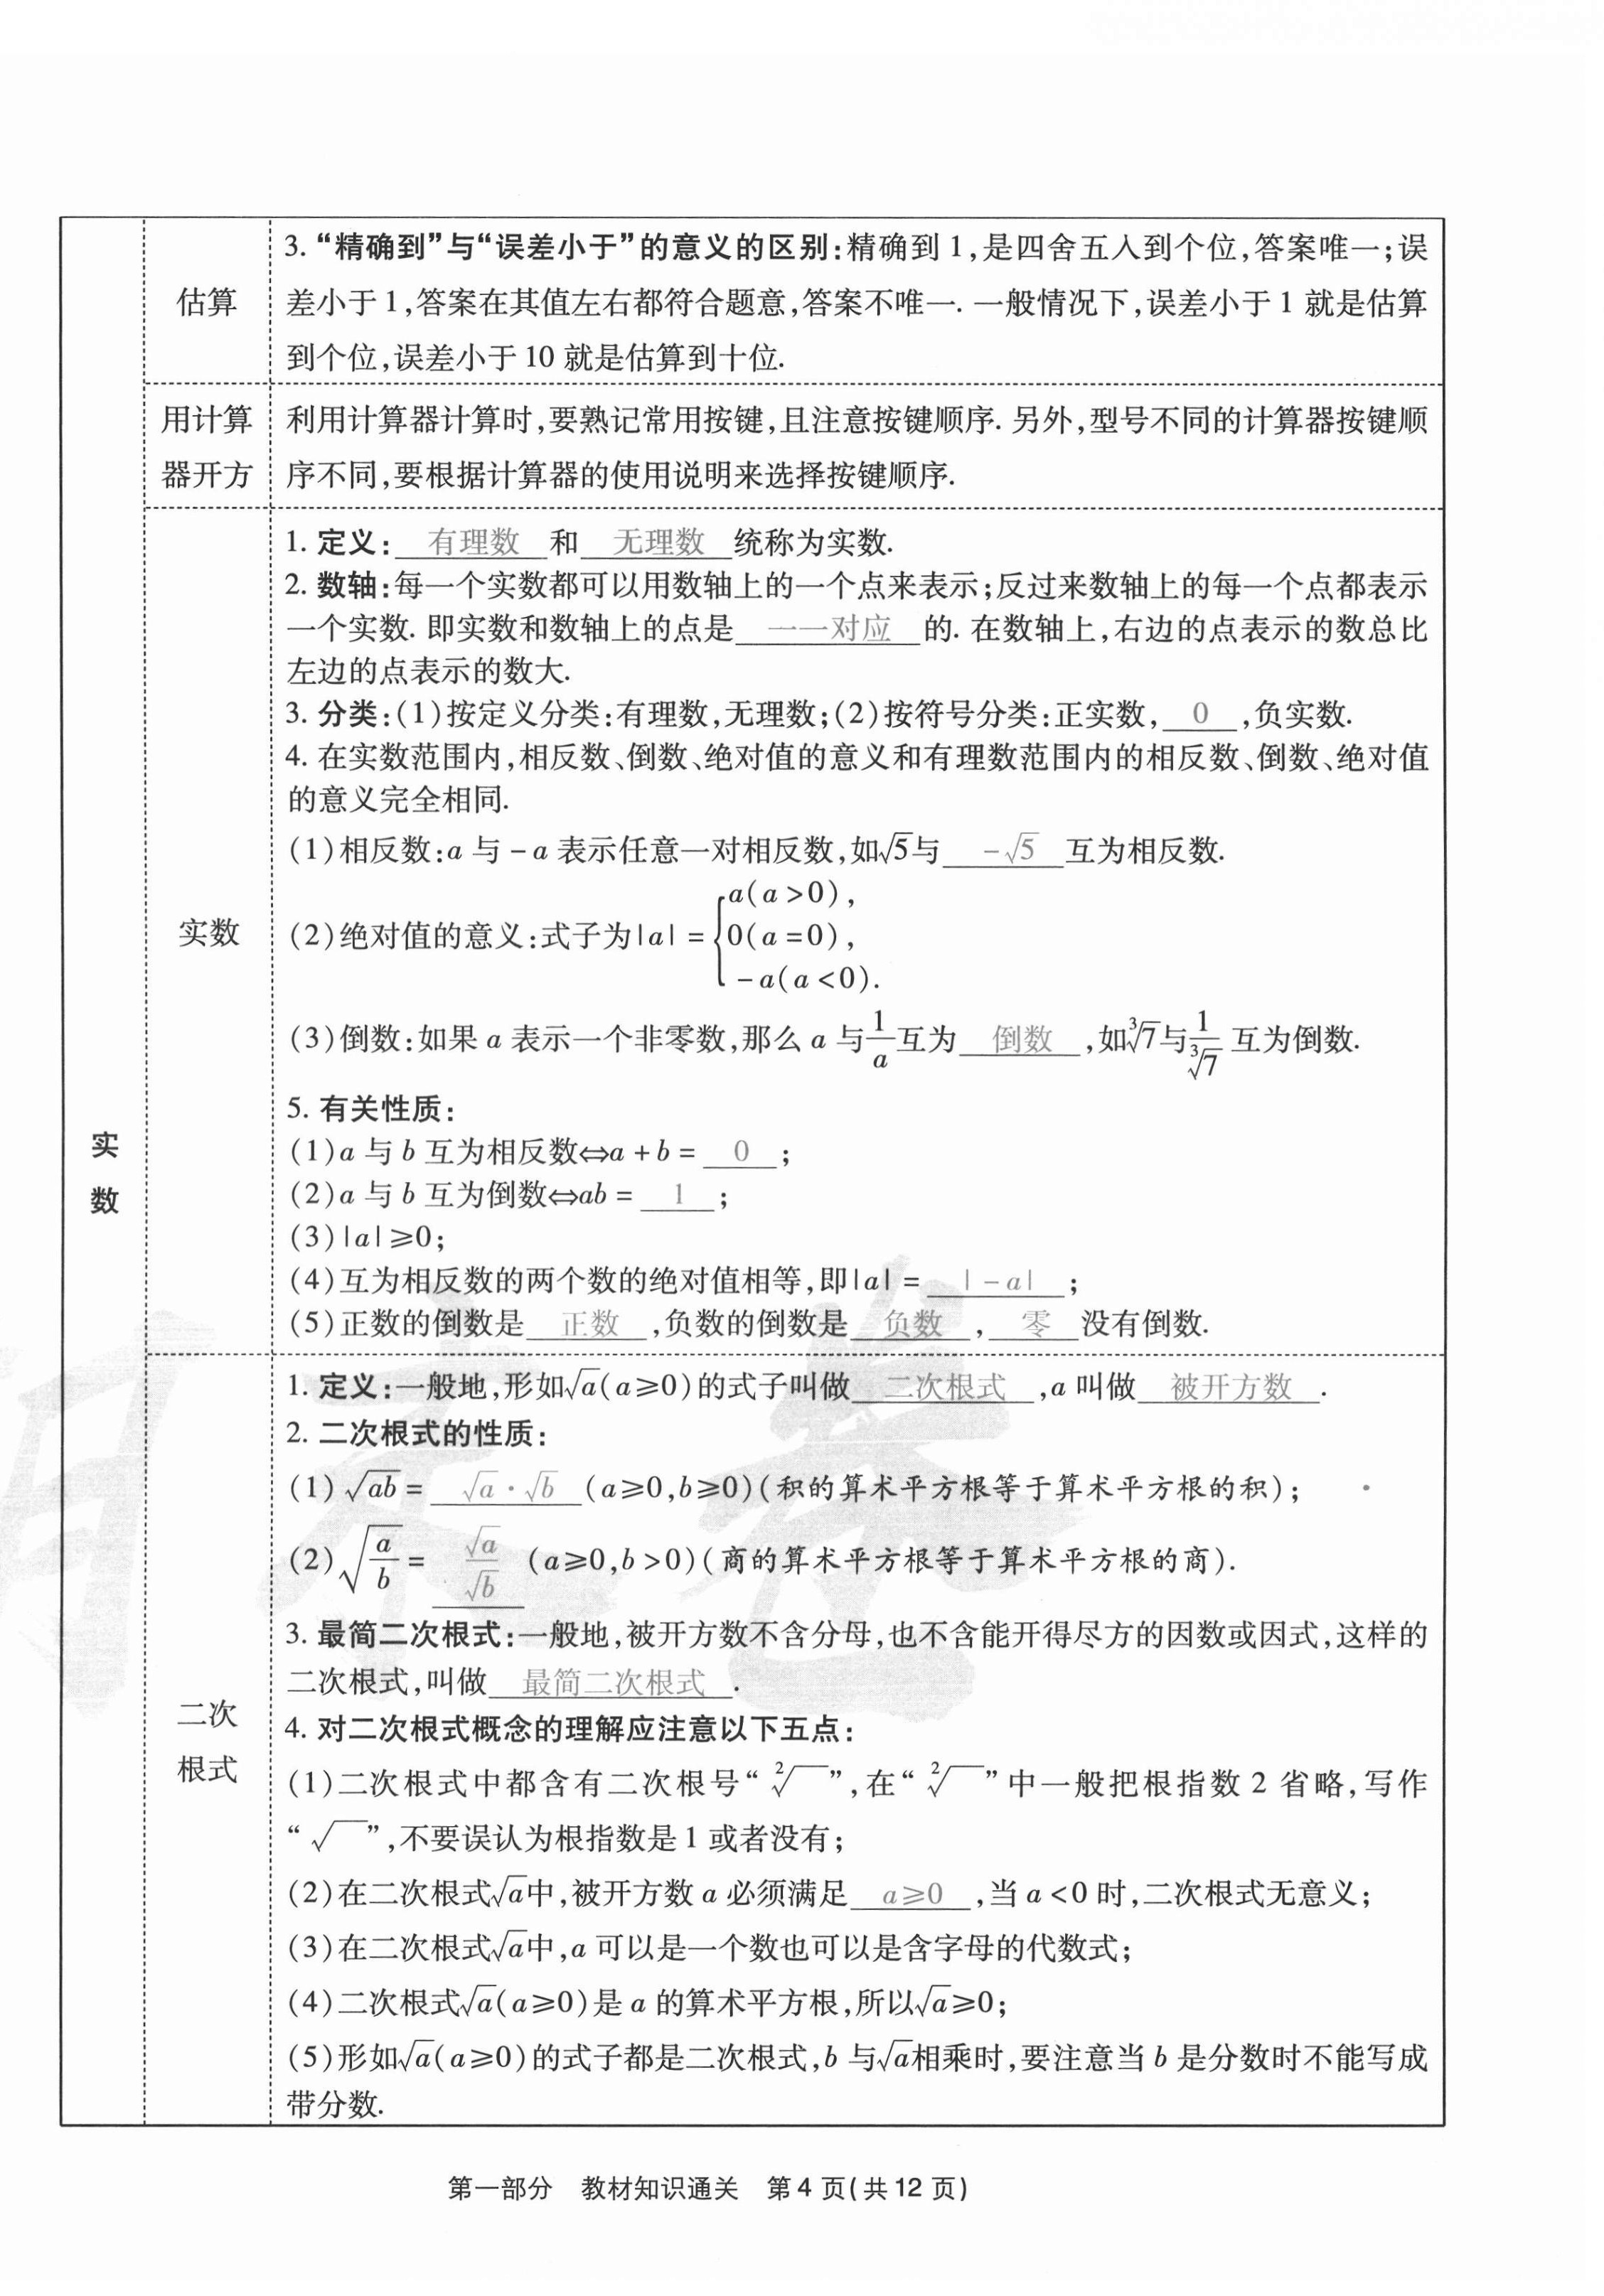 3. “精确到”与“误差小于”的意义的区别:精确到 1,是四舍五入到个位,答案唯一;误
估算
差小于 1,答案在其值左右都符合题意,答案不唯一. 一般情况下,误差小于 1 就是估算
到个位,误差小于 10 就是估算到十位.
用计算
器开方
利用计算器计算时,要熟记常用按键,且注意按键顺序. 另外,型号不同的计算器按键顺
序不同,要根据计算器的使用说明来选择按键顺序.
实数
实数
1. 定义: 有理数 和 无理数 统称为实数.
2. 数轴:每一个实数都可以用数轴上的一个点来表示;反过来数轴上的每一个点都表示
一个实数. 即实数和数轴上的点是 一一对应 的. 在数轴上,右边的点表示的数总比
左边的点表示的数大.
3. 分类:(1)按定义分类:有理数,无理数;(2)按符号分类:正实数, 0 ,负实数.
4. 在实数范围内,相反数、倒数、绝对值的意义和有理数范围内的相反数、倒数、绝对值
的意义完全相同.
(1)相反数:a 与 -a 表示任意一对相反数,如√5与 -√5 互为相反数.
(2)绝对值的意义:式子为|a| = {a(a>0),
0(a=0),
-a(a<0).
(3)倒数:如果 a 表示一个非零数,那么 a 与1/a互为 倒数 ,如³√7与1/³√7 互为倒数.
5. 有关性质:
(1)a 与 b 互为相反数⇔a+b= 0 ;
(2)a 与 b 互为倒数⇔ab= 1 ;
(3)|a|≥0;
(4)互为相反数的两个数的绝对值相等,即|a| = |-a| ;
(5)正数的倒数是 正数 ,负数的倒数是 负数 , 零 没有倒数.
二次
根式
1. 定义:一般地,形如√a(a≥0)的式子叫做 二次根式 ,a 叫做 被开方数 .
2. 二次根式的性质:
(1)√ab = √a·√b (a≥0,b≥0)(积的算术平方根等于算术平方根的积);
(2)√(a/b) = √a/√b (a≥0,b>0)(商的算术平方根等于算术平方根的商).
3. 最简二次根式:一般地,被开方数不含分母,也不含能开得尽方的因数或因式,这样的
二次根式,叫做 最简二次根式 .
4. 对二次根式概念的理解应注意以下五点:
(1)二次根式中都含有二次根号“²√ ”,在“²√ ”中一般把根指数 2 省略,写作
“√ ”,不要误认为根指数是 1 或者没有;
(2)在二次根式√a中,被开方数 a 必须满足 a≥0 ,当 a<0 时,二次根式无意义;
(3)在二次根式√a中,a 可以是一个数也可以是含字母的代数式;
(4)二次根式√a(a≥0)是 a 的算术平方根,所以√a≥0;
(5)形如√a(a≥0)的式子都是二次根式,b 与√a相乘时,要注意当 b 是分数时不能写成
带分数.
第一部分 教材知识通关 第 4 页(共 12 页)